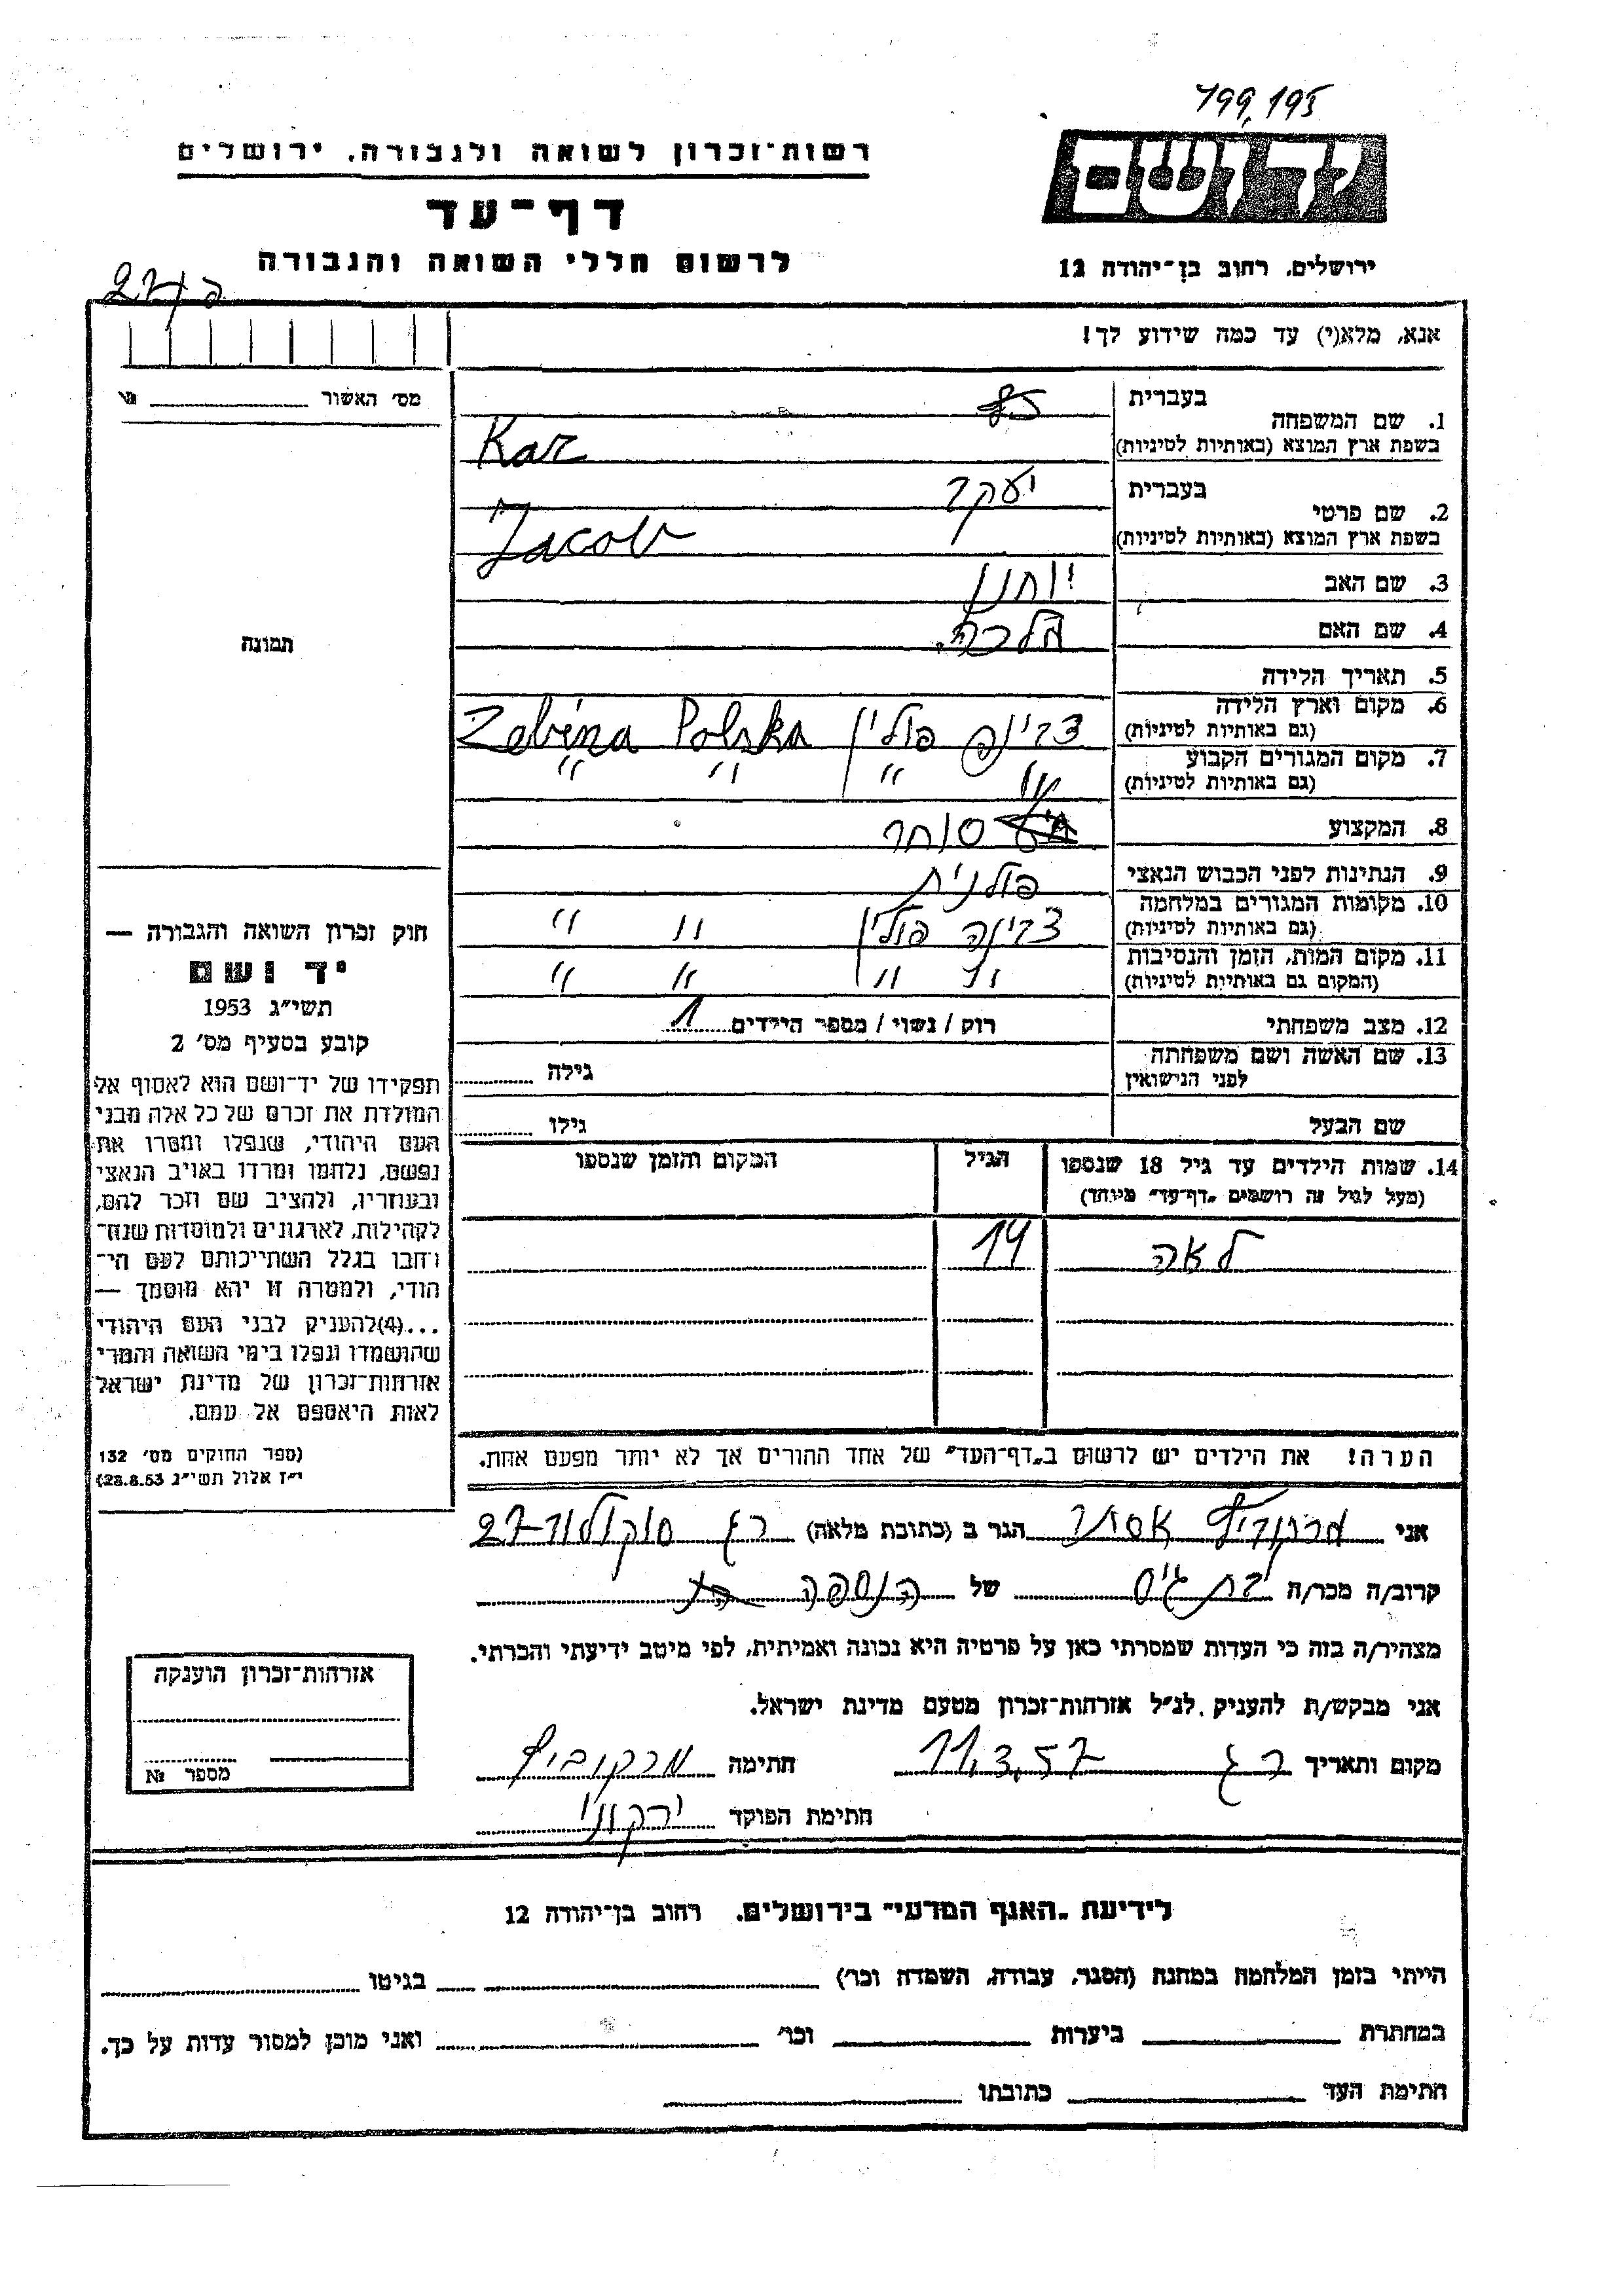 799,195
רשות-זכרון לשואה ולגבורה, ירושלים
יד ושם
דף-עד
לרשום חללי השואה והגבורה
ירושלים, רחוב בן-יהודה 12
אנא, מלא(י) עד כמה שידוע לך!
מס׳ האשור
1. שם המשפחה
בעברית
בשפת ארץ המוצא (באותיות לטיניות) Kaz
2. שם פרטי
בעברית יעקב
בשפת ארץ המוצא (באותיות לטיניות) Jacob
3. שם האב יוחנן
4. שם האם מלכה
תמונה
5. תאריך הלידה
6. מקום וארץ הלידה
(גם באותיות לטיניות) פולין Zebina Polska
7. מקום המגורים הקבוע
(גם באותיות לטיניות) " " " "
8. המקצוע סוחר
9. הנתינות לפני הכבוש הנאצי פולנית
10. מקומות המגורים במלחמה
(גם באותיות לטיניות) צבינה פולין " "
11. מקום המות, הזמן והנסיבות
(המקום גם באותיות לטיניות) " " " "
12. מצב משפחתי רוק / נשוי / מספר הילדים 1
13. שם האשה ושם משפחתה
לפני הנישואין גילה
שם הבעל גילו
14. שמות הילדים עד גיל 18 שנספו הגיל המקום והזמן שנספו
(מעל לגיל זה רושמים „דף-עד" מיוחד)
לאה 14
הערה! את הילדים יש לרשום ב„דף-העד" של אחד ההורים אך לא יותר מפעם אחת.
חוק זכרון השואה והגבורה —
יד ושם
תשי"ג 1953
קובע בסעיף מס׳ 2
תפקידו של יד-ושם הוא לאסוף אל
המולדת את זכרם של כל אלה מבני
העם היהודי, שנפלו ומסרו את
נפשם, נלחמו ומרדו באויב הנאצי
ובעוזריו, ולהציב שם וזכר להם,
לקהילות, לארגונים ולמוסדות שנח-
רבו בגלל השתייכותם לעם הי-
הודי, ולמטרה זו יהא מוסמך —
...(4)להעניק לבני העם היהודי
שהושמדו ונפלו בימי השואה והמרי
אזרחות-זכרון של מדינת ישראל
לאות היאספם אל עמם.
(ספר החוקים מס׳ 132
י"ז אלול תשי"ג 28.8.53)
אני מרקוביץ אסתר הגר ב (כתובת מלאה) רג סוקולוב 27
קרוב/ה מכר/ה בת גיס של הנספה
מצהיר/ה בזה כי העדות שמסרתי כאן על פרטיה היא נכונה ואמיתית, לפי מיטב ידיעתי והכרתי.
אני מבקש/ת להעניק לנ"ל אזרחות-זכרון מטעם מדינת ישראל.
מקום ותאריך רג 11.3.57 חתימה מרקוביץ
חתימת הפוקד ירקוני
אזרחות-זכרון הוענקה
מספר №
לידיעת „האגף המדעי" בירושלים, רחוב בן-יהודה 12
הייתי בזמן המלחמה במחנה (הסגר, עבודה, השמדה וכו׳) בגיטו
במחתרת ביערות וכו׳ ואני מוכן למסור עדות על כך.
חתימת העד כתובתו